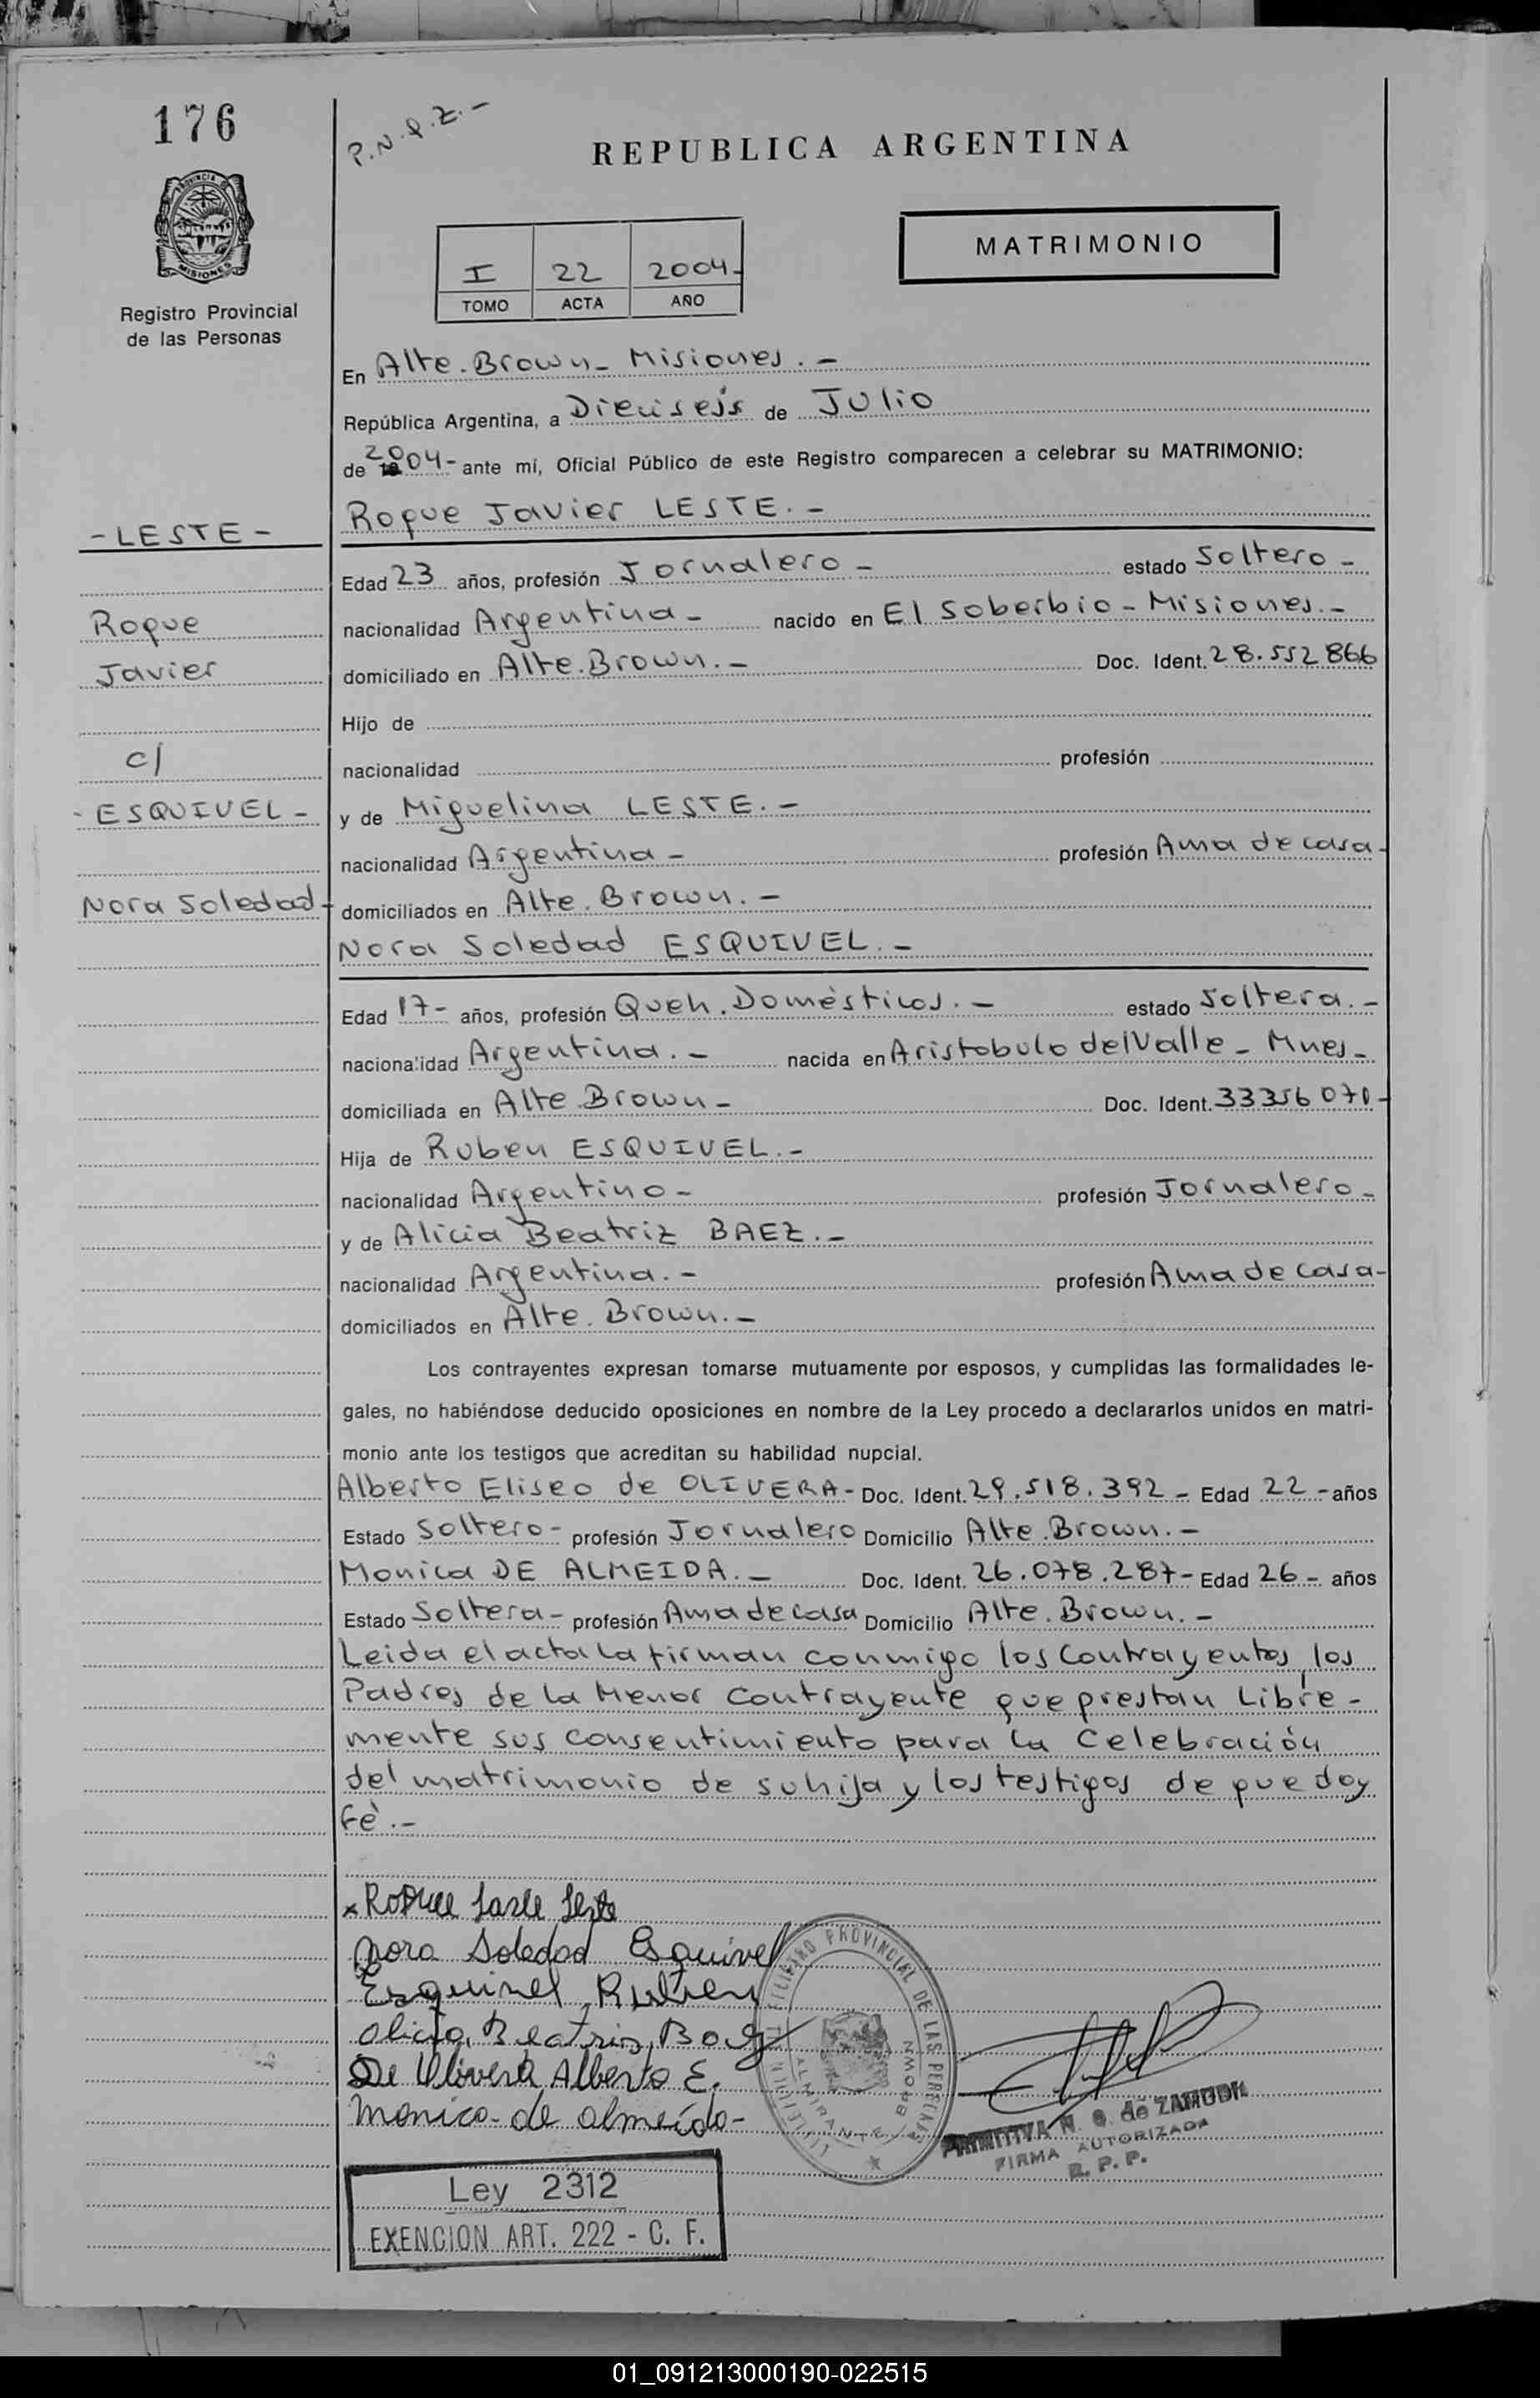 176
P.N.Q.Z.-
REPUBLICA ARGENTINA
PROVINCIA DE
MISIONES
Registro Provincial
de las Personas
I 22 2004-
TOMO ACTA AÑO
MATRIMONIO
En Alte. Brown - Misiones.-
República Argentina, a Dieciseis de Julio
de 2004- ante mí, Oficial Público de este Registro comparecen a celebrar su MATRIMONIO:
Roque Javier LESTE.-
- LESTE -
Edad 23 años, profesión Jornalero - estado Soltero -
Roque
nacionalidad Argentina - nacido en El Soberbio - Misiones.-
Javier
domiciliado en Alte. Brown.- Doc. Ident. 28.552866
Hijo de
c/
nacionalidad profesión
- ESQUIVEL -
y de Miguelina LESTE.-
nacionalidad Argentina - profesión Ama de casa-
Nora Soledad -
domiciliados en Alte. Brown.-
Nora Soledad ESQUIVEL.-
Edad 17- años, profesión Queh. Domésticos.- estado Soltera.-
nacionalidad Argentina.- nacida en Aristobulo del Valle - Mnes-
domiciliada en Alte Brown - Doc. Ident. 33356070-
Hija de Ruben ESQUIVEL.-
nacionalidad Argentino - profesión Jornalero -
y de Alicia Beatriz BAEZ.-
nacionalidad Argentina.- profesión Ama de casa-
domiciliados en Alte. Brown.-
Los contrayentes expresan tomarse mutuamente por esposos, y cumplidas las formalidades le-
gales, no habiéndose deducido oposiciones en nombre de la Ley procedo a declararlos unidos en matri-
monio ante los testigos que acreditan su habilidad nupcial.
Alberto Eliseo de OLIVERA - Doc. Ident. 29.518.392 - Edad 22 - años
Estado Soltero - profesión Jornalero Domicilio Alte. Brown.-
Monica DE ALMEIDA.- Doc. Ident. 26.078.287- Edad 26 - años
Estado Soltera - profesión Ama de casa Domicilio Alte. Brown.-
Leida el acta la firman conmigo los Contrayentes, los
Padres de la Menor Contrayente que prestan Libre-
mente sus consentimiento para la Celebración
del matrimonio de su hija y los testigos de que doy
fé.-
x Leste
Nora Soledad Esquivel
Esquivel Ruben
Alicia Beatriz Baez
De Olivera Alberto E.
Monica de almeida-
REGISTRO PROVINCIAL DE LAS PERSONAS
ALMIRANTE BROWN
PRIMITIVA N. G. de ZAMUDIO
FIRMA AUTORIZADA
R. P. P.
Ley 2312
EXENCION ART. 222 - C. F.
01_091213000190-022515